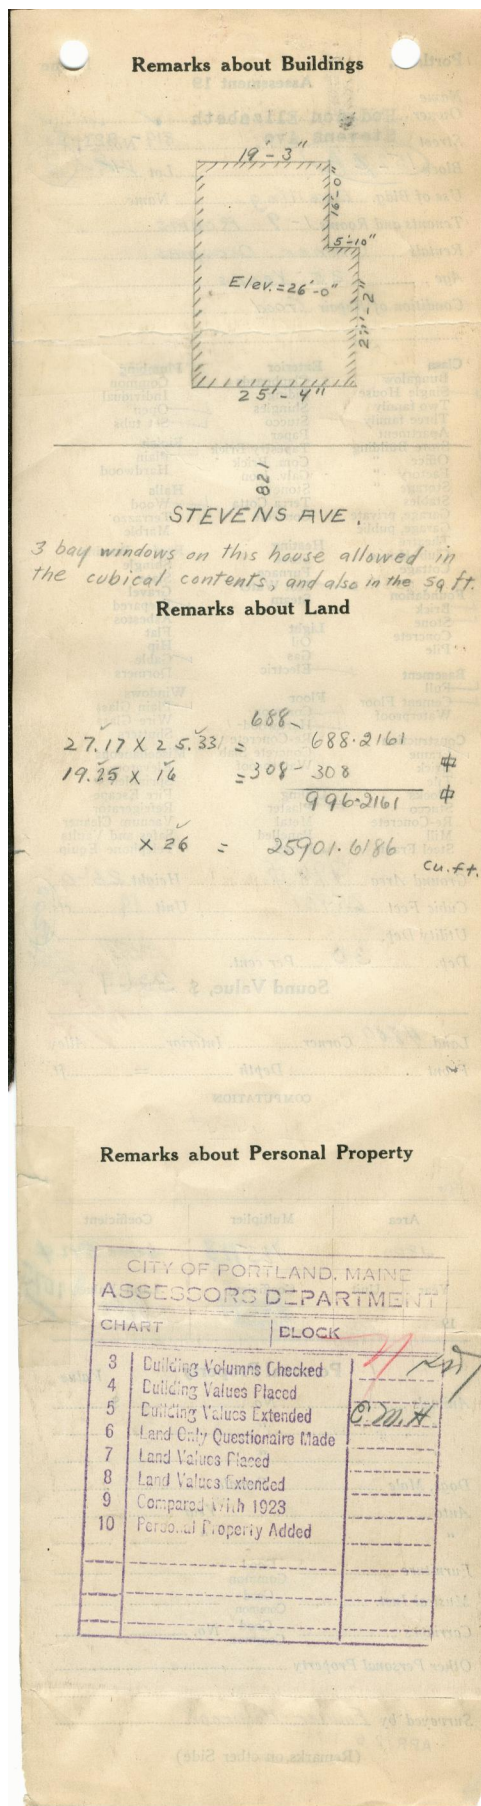 Remarks about Buildings
19'-3"
16'-0"
5'-10"
Elev.=26'-0"
25'-4"
821
STEVENS AVE.
3 bay windows on this house allowed in
the cubical contents, and also in the sq ft.
Remarks about Land
688-
27.17 X 25.33 = 688.2161
19.25 x 16 = 308- 308
996.2161
x 26 = 25901.6186
cu.ft.
Remarks about Personal Property
CITY OF PORTLAND, MAINE
ASSESSORS DEPARTMENT
CHART BLOCK
3 Building Volumns Checked
4 Building Values Placed
5 Building Values Extended C.M.H
6 Land Only Questionaire Made
7 Land Values Placed
8 Land Values Extended
9 Compared With 1923
10 Personal Property Added